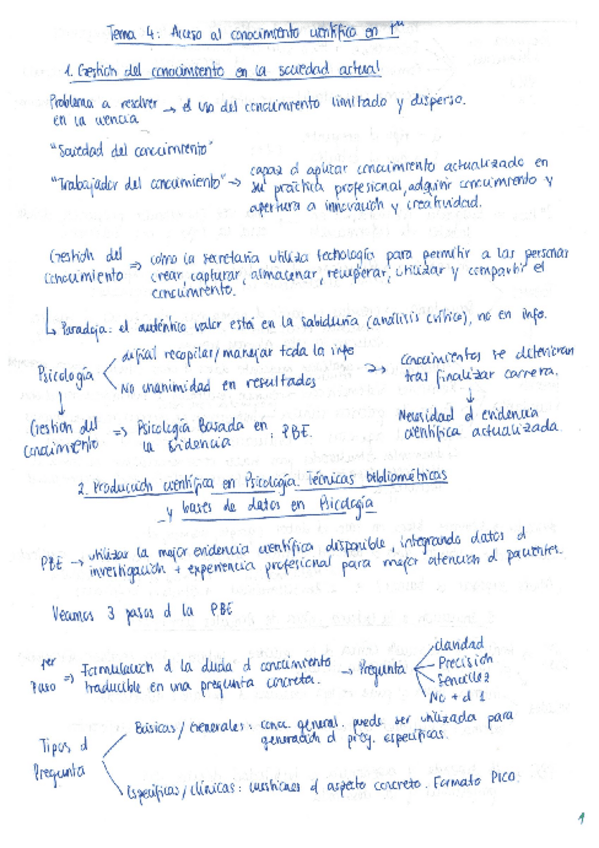 Tema 4: Acceso al conocimiento científico en Ψ
1. Gestión del conocimiento en la sociedad actual
Problema a resolver → el uso del conocimiento limitado y disperso.
en la ciencia
"Sociedad del conocimiento"
"Trabajador del conocimiento" → capaz d aplicar conocimiento actualizado en
su práctica profesional, adquirir conocimiento y
apertura a innovación y creatividad.
Gestión del conocimiento ⇒ cómo la secretaria utiliza tecnología para permitir a las personas
crear, capturar, almacenar, recuperar, utilizar y compartir el
conocimiento.
↳ Paradoja: el auténtico valor está en la sabiduría (análisis crítico), no en info.
Psicología
difícil recopilar/manejar toda la info
No unanimidad en resultados
⇒ Conocimientos se deterioran
tras finalizar carrera.
↓
Necesidad d evidencia
científica actualizada.
↓
Gestión del conocimiento ⇒ Psicología Basada en la Evidencia, PBE.
2. Producción científica en Psicología. Técnicas bibliométricas
y bases de datos en Psicología
PBE → utilizar la mejor evidencia científica disponible, integrando datos d
investigación + experiencia profesional para mejor atención d pacientes.
Veamos 3 pasos d la PBE
1er Paso ⇒ Formulación d la duda d conocimiento
traducible en una pregunta concreta. → Pregunta
claridad
Precisión
Sencillez
No + d 1
Tipos d Pregunta
Básicas / Generales: conoc. general. puede ser utilizada para
generación d preg. específicas.
Específicas / clínicas: cuestiones d aspecto concreto. Formato PICO.
1